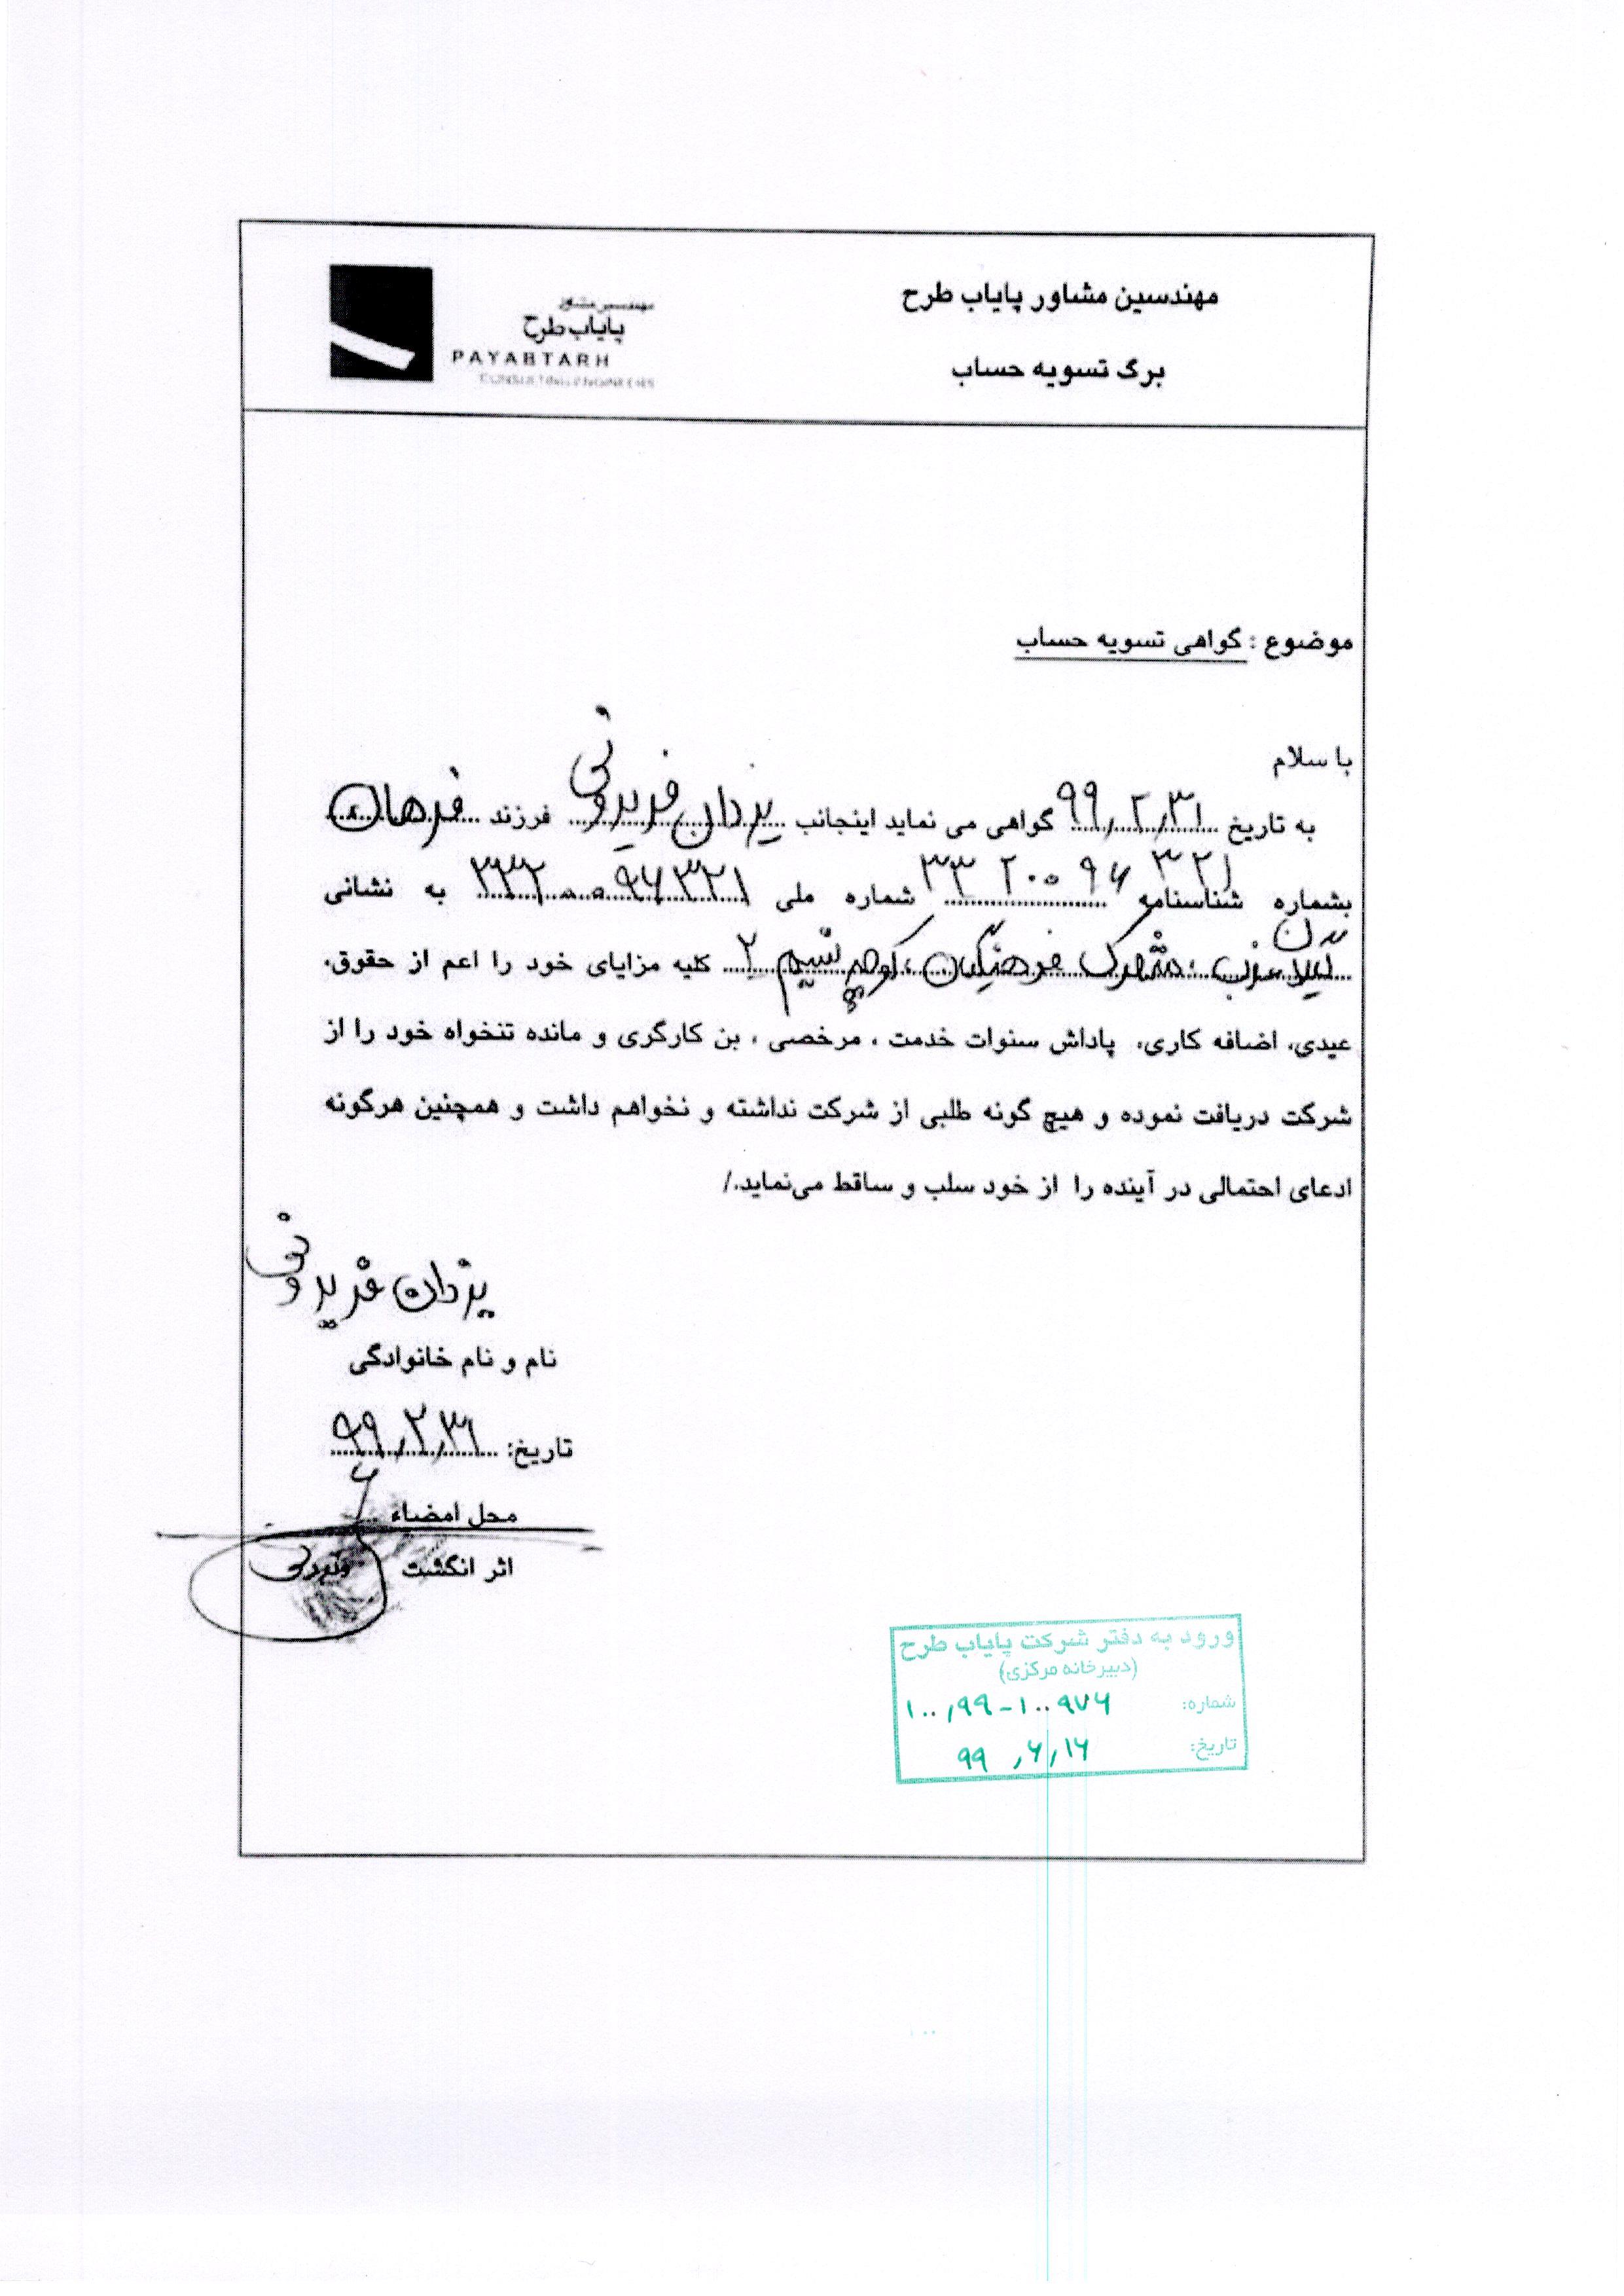 مهندسین مشاور پایاب طرح
برگ تسویه حساب
مهندسین مشاور
پایاب طرح
PAYABTARH
CONSULTING ENGINEERS
موضوع : گواهی تسویه حساب
با سلام
به تاریخ ۹۹٫۲٫۳۱ گواهی می نماید اینجانب یزدان فریدونی فرزند فرهان
بشماره شناسنامه ۳۳۲۰۰۹۶۳۲۱ شماره ملی ۳۳۲۰۰۹۶۳۲۱ به نشانی
، شهرک فرهنگیان ، کوچه نسیم ۲ کلیه مزایای خود را اعم از حقوق،
عیدی، اضافه کاری، پاداش سنوات خدمت ، مرخصی ، بن کارگری و مانده تنخواه خود را از
شرکت دریافت نموده و هیچ گونه طلبی از شرکت نداشته و نخواهم داشت و همچنین هرگونه
ادعای احتمالی در آینده را از خود سلب و ساقط می‌نماید./
یزدان فریدونی
نام و نام خانوادگی
تاریخ: ۹۹٫۲٫۳۱
محل امضاء
اثر انگشت
ورود به دفتر شرکت پایاب طرح
(دبیرخانه مرکزی)
شماره: ۱۰۰٫۹۹-۱۰۰۹۷۶
تاریخ: ۹۹٫۶٫۱۶